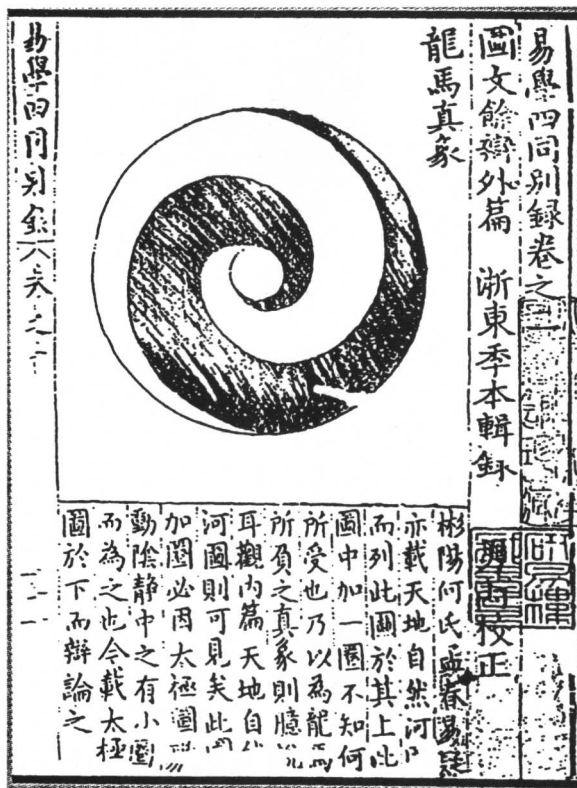 易學四同別錄卷之一
圖文餘辯外篇 浙東季本輯錄
校正
龍馬真象
彬陽何氏孟春易疑
亦載天地自然河
而列此圖於其上此
圖中加一圈不知何
所受也乃以為龍馬
所負之真象則臆說
耳觀內篇天地自
河圖則可見矣此
加圈必因太極圖
動陰靜中之有小圈
而為之也今載太極
圖於下而辯論之
易學四同別錄